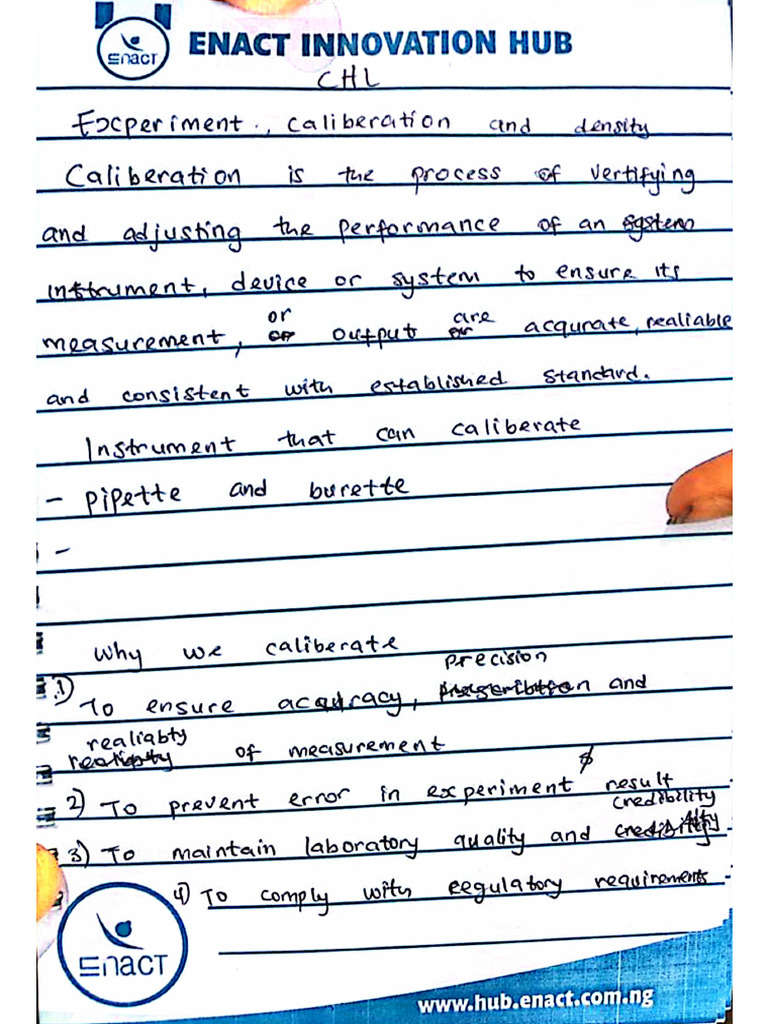 ENACT INNOVATION HUB
ENACT
CHL
Experiment, caliberation and density
Caliberation is the process of vertifying
and adjusting the performance of an system
instrument, device or system to ensure its
measurement, or output are acqurate, realiable
and consistent with established standard.
Instrument that can caliberate
- Pipette and burette
-
Why we caliberate
1) To ensure accuracy, precision and
realiabty of measurement
2) To prevent error in experiment result
3) To maintain laboratory quality and credibility
4) To comply with regulatory requirements
ENACT
www.hub.enact.com.ng